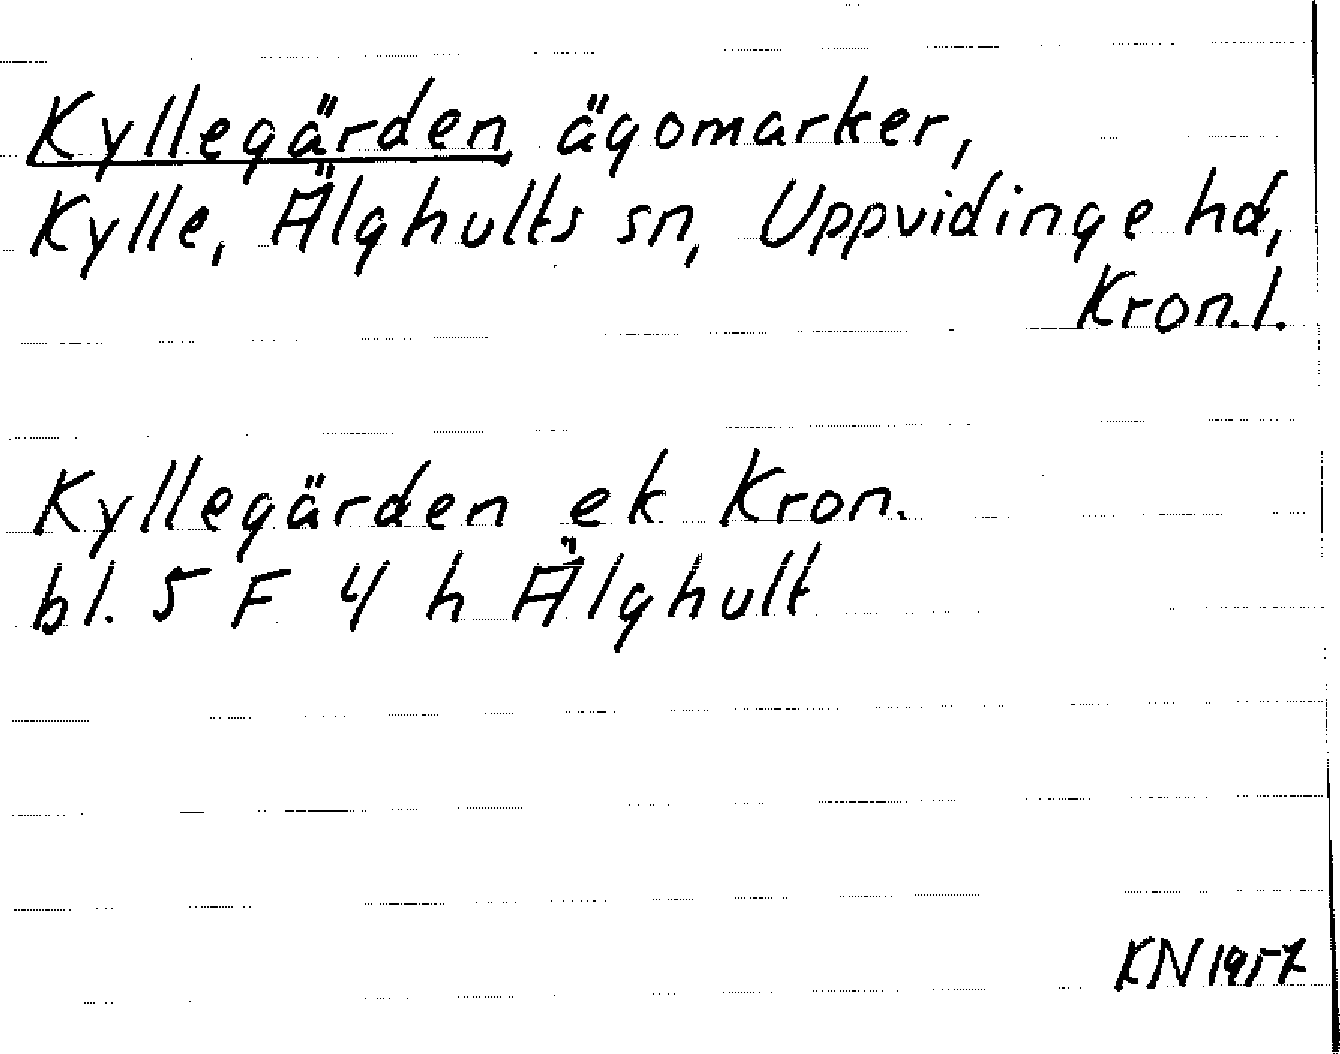 Kyllegärden, ägomarker,
Kylle, Älghults sn, Uppvidinge hd,
Kron.l.
Kyllegärden ek Kron.
bl. 5 F 4 h Älghult
KN 1957